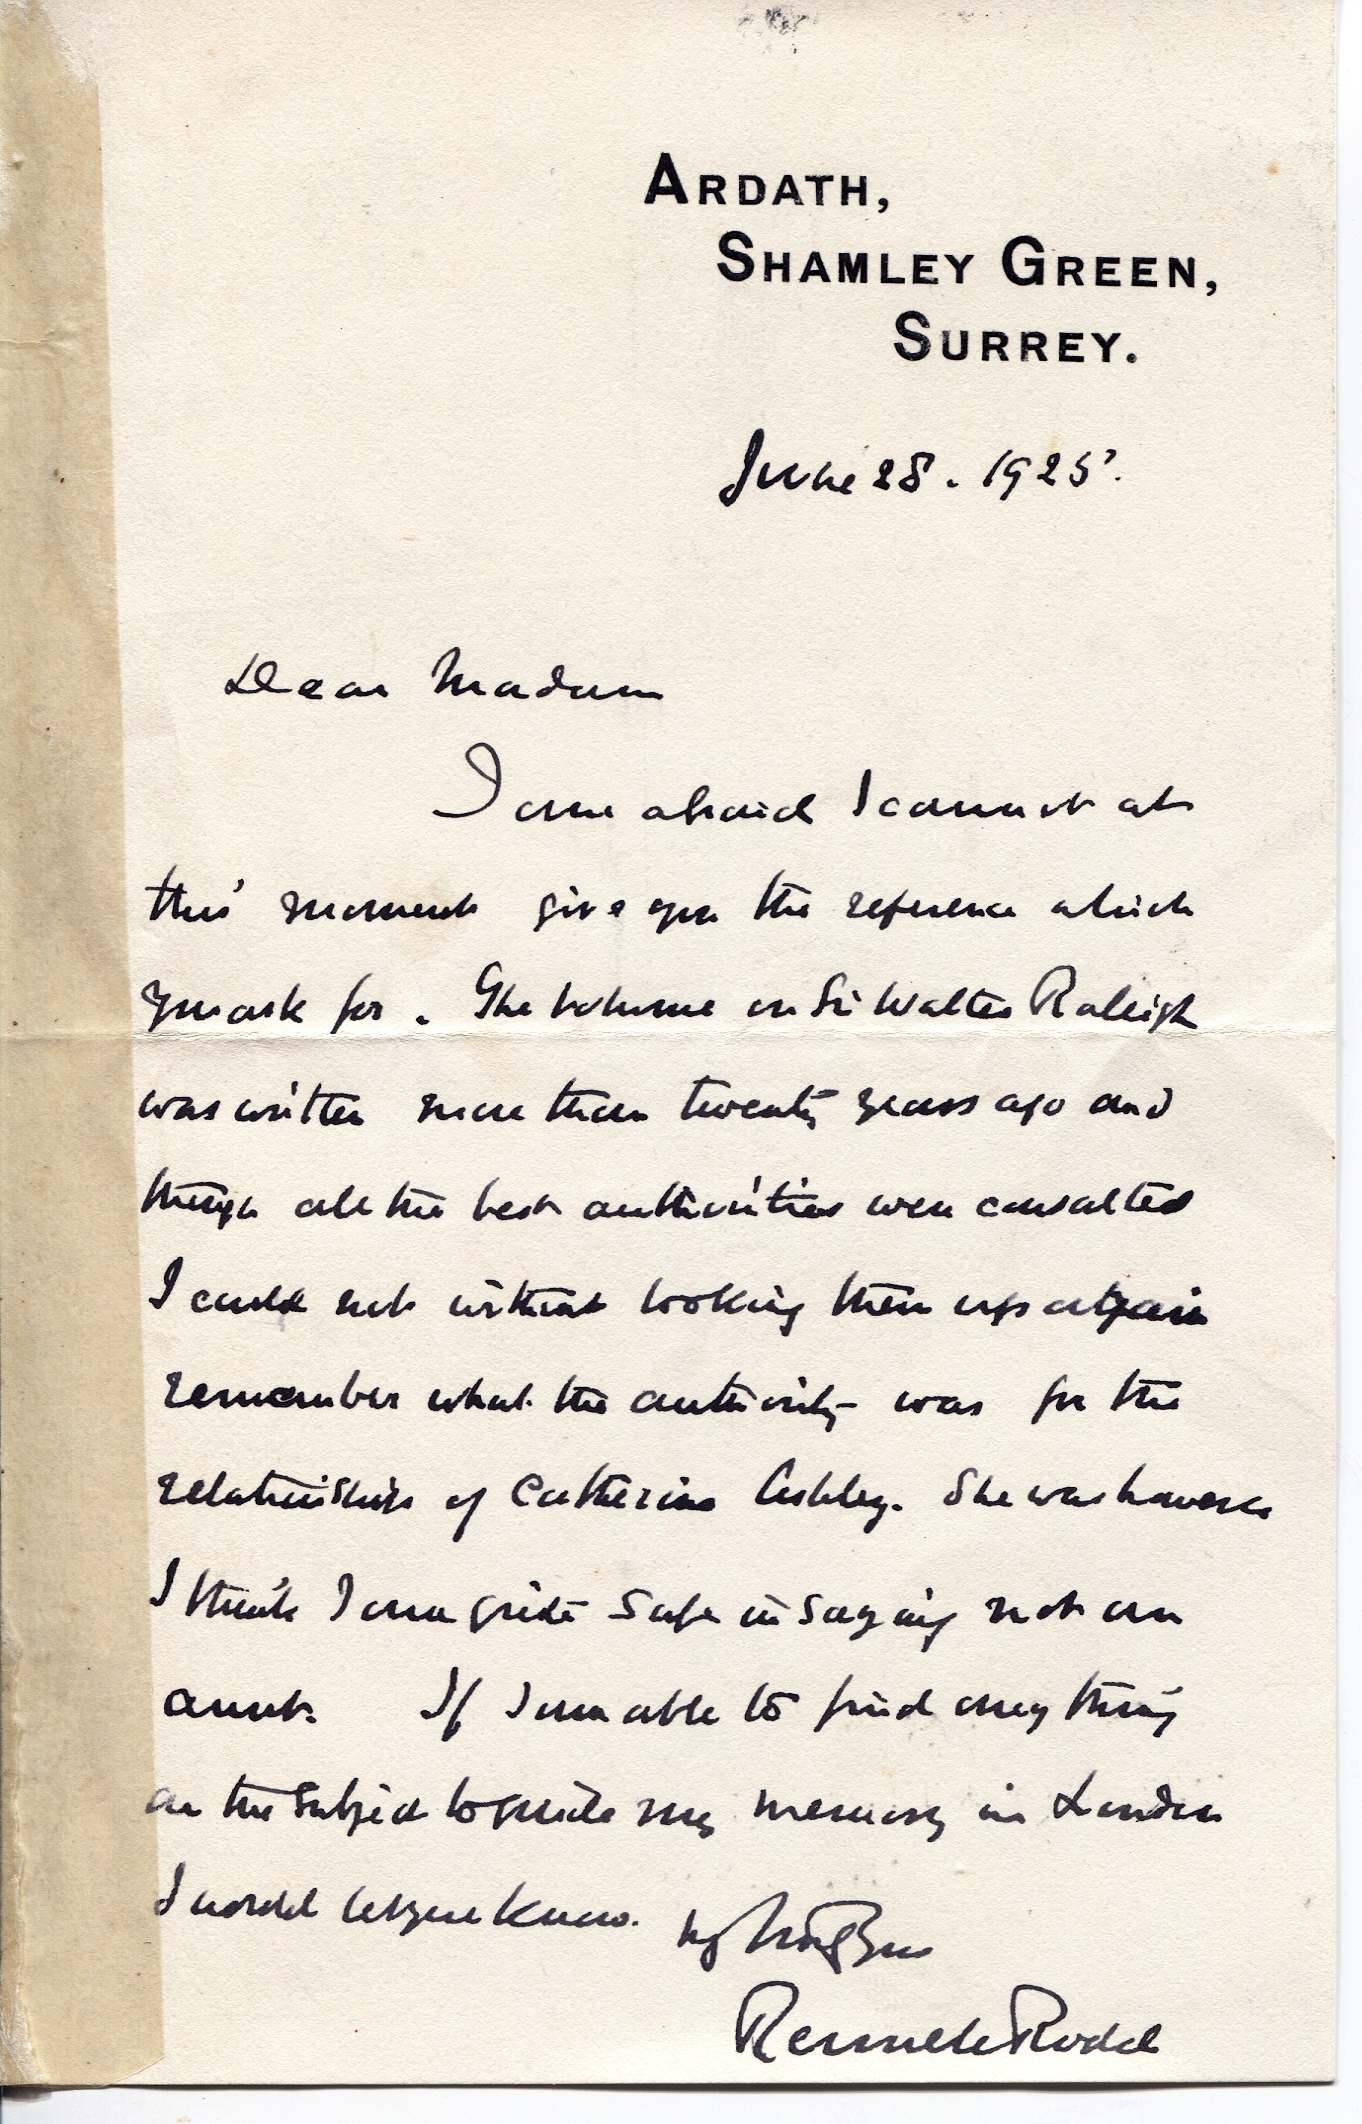 ARDATH,
SHAMLEY GREEN,
SURREY.
June 28. 1925.
Dear Madam
I am afraid I cannot at
this moment give you the reference which
you ask for. The volume on Sir Walter Raleigh
was written more than twenty years ago and
though all the best authorities were consulted
I could not without looking them up again
remember what the authority was for the
relationship of Catherine Ashley. She was however
I think I am quite safe in saying not an
aunt. If I am able to find any thing
on the subject to guide my memory in London
I would let you know.
Rennell Rodd